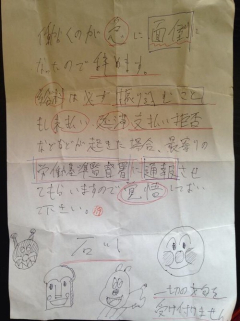 働くのが急に面倒に
なったので辞めます。
給料は必ず振り込むこと
もし未払い 遅延 支払い拒否
などなどが起きた場合、最寄りの
労働基準監督署に通報させ
てもらいますので覚悟しておい
て下さい。
石川
一切電話を
受け付けません